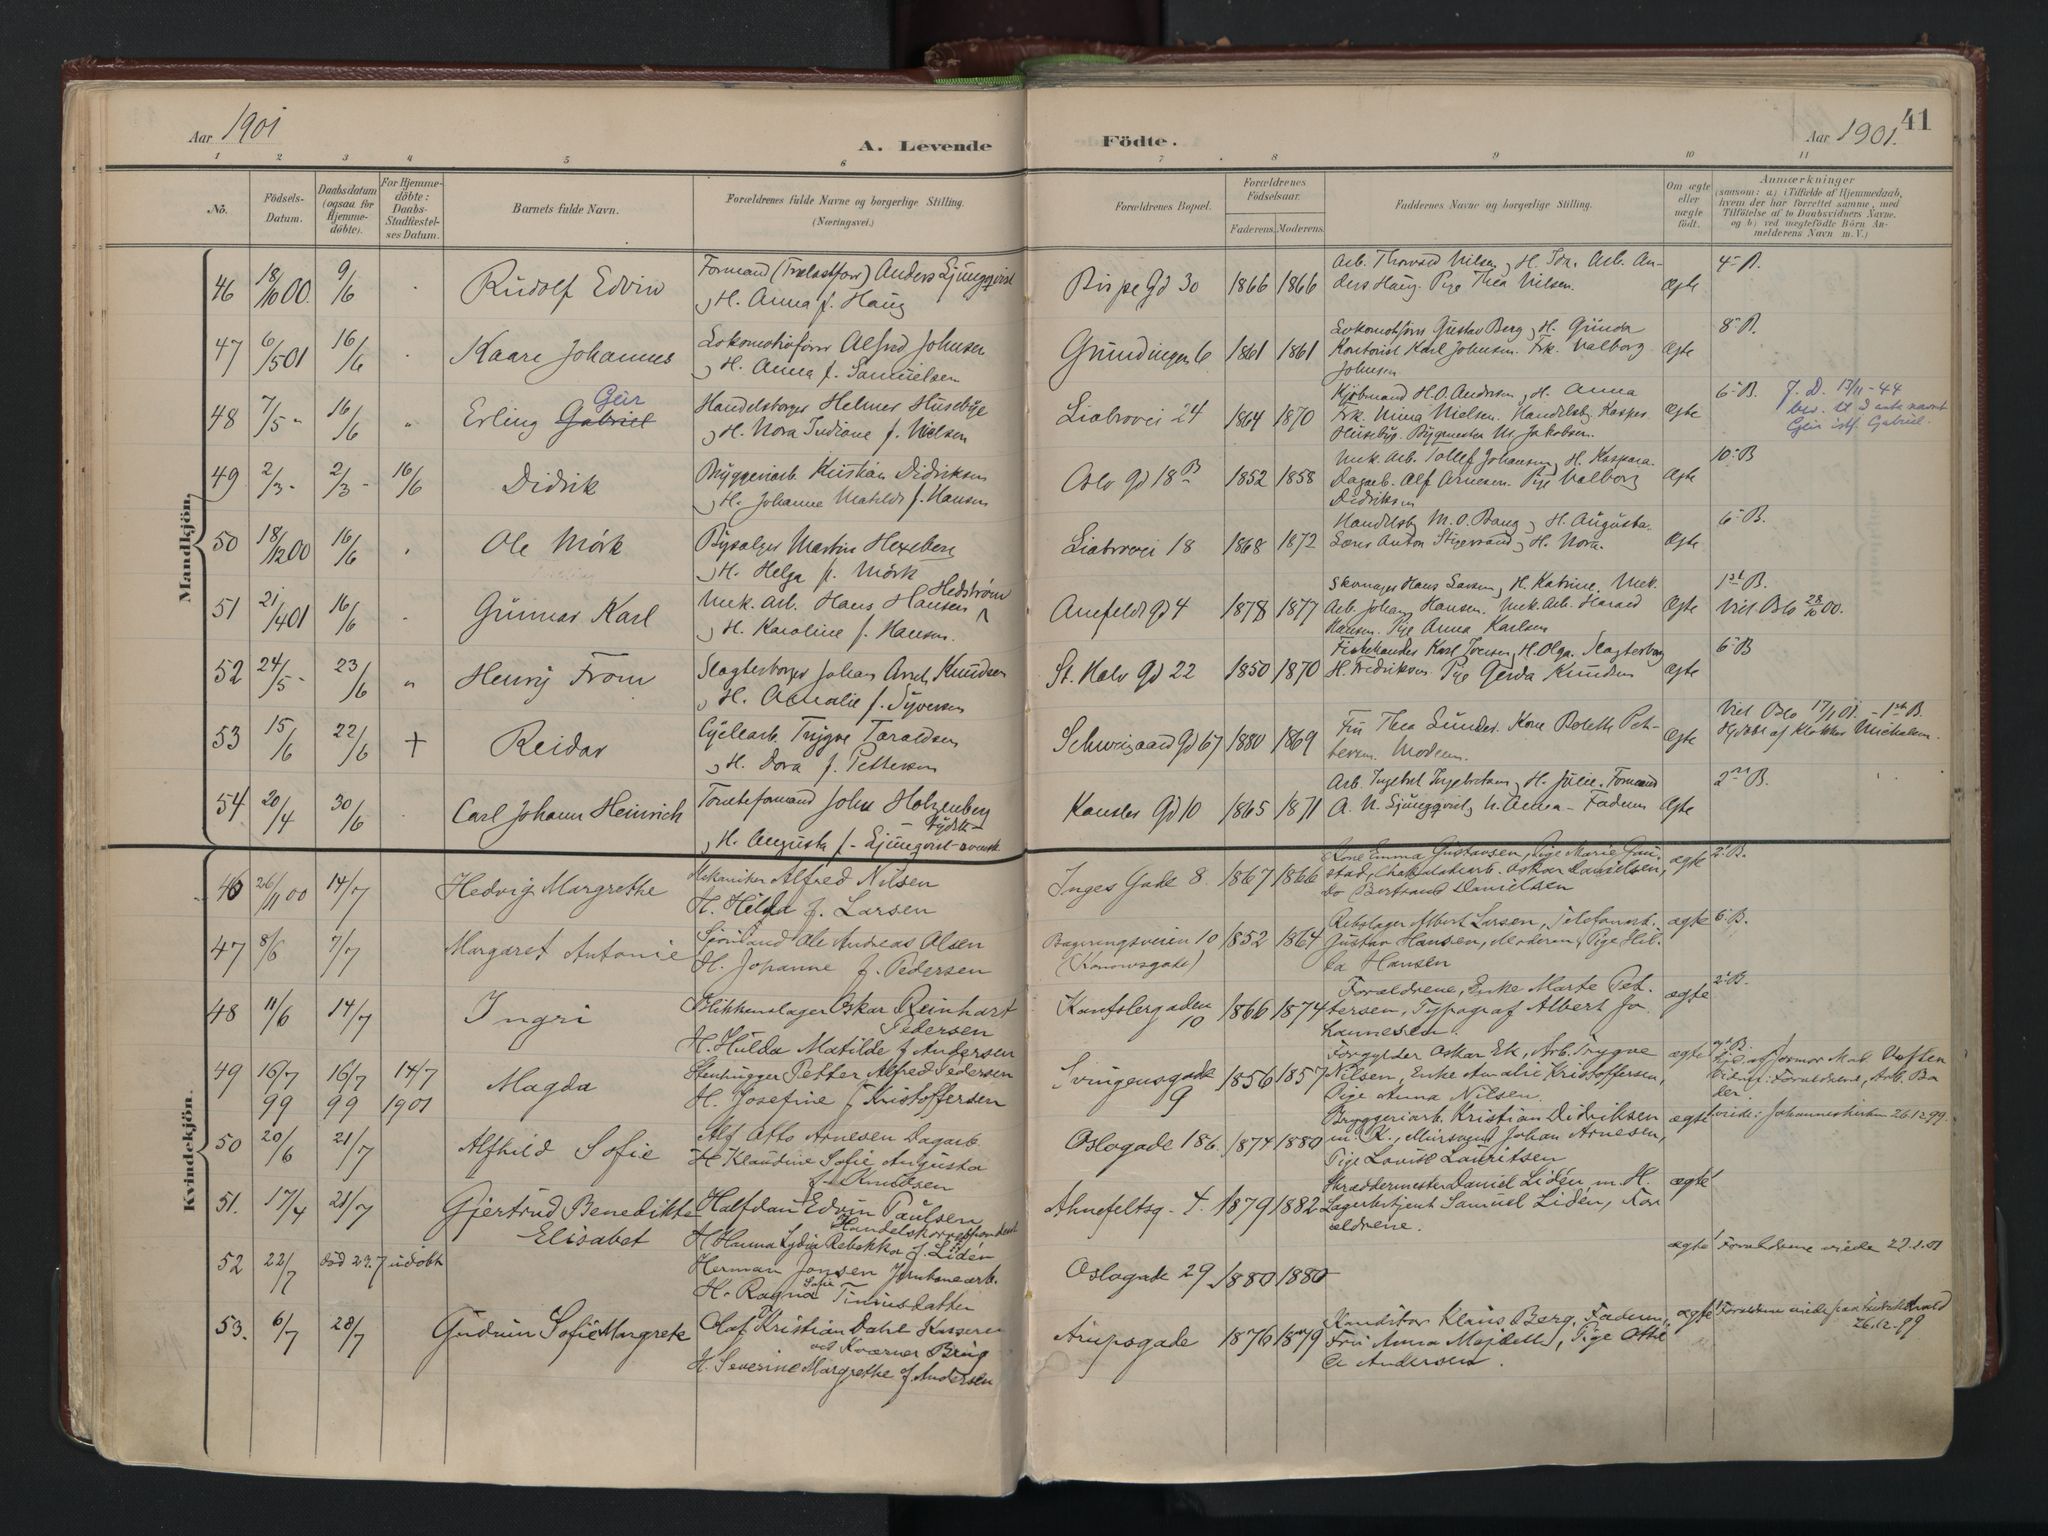 Aar 1901
A. Levende
Födte.
Aar 1901.
41
1 2 3 4 5 6 7 8 9 10 11
No.
Födsels-
Datum.
Daabsdatum
(ogsaa for
Hjemme-
döbte).
For Hjemme-
döbte:
Daabs-
Stadfæstel-
ses Datum.
Barnets fulde Navn.
Forældrenes fulde Navne og borgerlige Stilling.
(Næringsvei.)
Forældrenes Bopæl.
Forældrenes
Födselsaar.
Faderens. Moderens.
Faddernes Navne og borgerlige Stilling.
Om ægte
eller
uægte
født.
Anmærkninger
(saasom: a) i Tilfælde af Hjemmedaab,
hvem der har forrettet samme, med
Tilföielse af to Daabsvidners Navne.
og b) ved uægtefödte Börn An-
melderens Navn m. V.)
Mandkjön.
46 18/10 00. 9/6 Rudolf Edvin
Formand (Trælastforr) Anders Ljungqvist
og H. Anna f. Haug
Bispe Gd 30 1866 1866
Arb. Thorvald Nilsen og H. Ida. Arb. An-
ders Haug. Pige Thea Nilsen.
Ægte 4- B.
47 6/5 01 16/6 Kaare Johannes
Lokomotivfører Alfred Johnsen
og H. Anna f. Samuelsen
Grundingen 6 1861 1861
Lokomotivfører Gustav Berg og H. Gunda
Kontorist Karl Johnsen. Frk. Valborg
Johnsen
Ægte 8- B.
48 7/5 - 16/6 " Erling Gabriel Geir
Handelsborger Helmer Husebye
og H. Nora Indiane f. Nielsen
Liabrovei 24 1864 1870
Kjøbmand H.O. Andersen og H. Anna
Frk. Nina Nielsen. Handelsb. Kasper
Husebye. Bygmester M. Jakobsen.
Ægte 6- B.
J. D. 13/11 - 44
bev. til å ente navnet
Geir istf. Gabriel.
49 2/3 - 2/3 - 16/6 Didrik
Bryggeriarb. Kristian Didriksen
og H. Johanne Matilde f. Hansen
Oslo gd 18 B 1852 1858
Mek. Arb. Tollef Johansen og H. Kaspara.
Dagarb. Alf Arnesen. Pige Valborg
Didriksen
Ægte 10- B
50 18/12 00 16/6 Ole Mørk
Bysælger Martin Hexeberg
og H. Helga f. Mørk
Liabrovei 18 1868 1872
Handelsb. M. O. Bang og H. Augusta.
Lærer Anton Stigersand og H. Nora.
Ægte 6- B.
51 21/4 01 16/6 Gunnar Karl
Mek. Arb. Hans Hansen Hedstrøm
og H. Karoline f. Hansen.
Anefeldt gd 4 1878 1877
Skomager Hans Larsen og H. Katrine. Mek.
Arb. Johan Hansen. Mek. Arb. Harald
Hansen. Pige Anna Karlsen
Ægte 1st B.
Viet Oslo 28/10 00.
52 24/5 - 23/6 " Henry From
Slagterborger Johan Arndt Knudsen
og H. Amalie f. Syversen
St. Halv. Gd 22 1850 1870
Fiskehandler Karl Iversen og H. Olga. Slagterborg
H. Fredriksen. Pige Gerda Knudsen
Ægte 6- B
53 15/6 22/6 + Reidar
Cyclearb. Trygve Taraldsen
og H. Dora f. Pettersen
Schweigaard Gd 67 1880 1869
Fru Thea Lunder. Kone Bolette Pet-
tersen. Moderen.
Ægte
Viet Oslo 17/1 01. - 1st B.
Hjdøbt af Klokker Michelsen.
54 20/4 30/6 Carl Johann Heinrich
Tomteformand John Holzenberg
- tydsk -
og H. Augusta f. Ljungqvist - svensk
Kansler Gd 10 1865 1871
Arb. Ingebret Ingebretsen og H. Julie. Formand
A. N. Ljungqvist og H. Anna - Faderen
Ægte 2- B.
Kvindekjön.
46 26/11 00 14/7 Hedvig Margrethe
Mekaniker Alfred Nilsen
H. Hilda f. Larsen
Inges Gade 8. 1867 1866
Kone Emma Gustavsen, Pige Marie Gau-
stad, Chokoladearb. Oskar Danielsen,
do Bertrand Danielsen
ægte 2. B.
47 8/6 7/7 Margaret Antonie
Sjømand Ole Andreas Olsen
H. Johanne f. Pedersen
Bageringsveien 10
(Kanowsgade)
1852 1864
Rebslager Albert Larsen, Telefonmest.
Gustav Hansen, Moderen, Pige Hil-
da Hansen
ægte 6. B.
48 11/6 14/7 Ingri
Blikkenslager Oskar Reinhart
Pedersen
H. Hulda Matilde f. Andersen
Kantslergaden
10
1866 1874
Forældrene, Enke Marte Pet-
tersen, Typograf Albert Jo-
hannesen.
ægte 2. B.
49 16/7 99 16/7 99 14/7 1901 Magda
Stenhugger Petter Alfred Pedersen
H. Josefine f. Kristoffersen
Svingensgade
9
1856 1857
Forgylder Oskar Ek, Arb. Trygve
Nilsen, Enke Amalie Kristoffersen,
Pige Anna Nilsen.
ægte
50 20/6 21/7 Alfhild Sofie
Alf Otto Arnesen Dagarb.
H. Klaudine Sofie Augusta
f. Knudsen
Oslogade 18b. 1874 1880
Bryggeriarb. Kristian Didriksen
m. K., Mursvend Johan Arnesen,
Pige Lovise Lauritsen
ægte
viede: Johanneskirken 26.12.99.
51. 17/4 21/7 Gjertrud Benedikte
Elisabet
Halfdan Edvin Paulsen
Handelskorrespondent
H. Hanna Lydia Rebekka f. Liden
Ahnefeltsg. 4. 1879 1882
Skræddermester Daniel Liden m. H.
Lagerbetjent Samuel Liden, For-
ældrene.
ægte
52 22/7 død 23.7 udøbt
Herman Jonsen Jernbanearb.
H. Ragna Sofie Tiniusdatter
Oslogade 29 1880 1880
ægte
Forældrene viede 27.1.01
53. 6/7 28/7 Gudrun Sofie Margrete
Olaf Kristian Dahl Kasserer
ved Kværner Brug
H. Severine Margrethe f. Andersen
Arupsgade 1876 1879
Konditor Klaus Berg, Faderen,
Fru Anna Mejdell, Pige Otti-
lie Andersen.
ægte
26.12.99